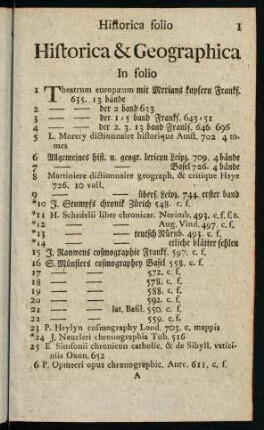 Historica folio 1
Historica & Geographica
In folio
1 Theatrum europæum mit Merians kupfern Frankf.
635. 13 bände
2 — — der 2 band 633
3 — — der 1-5 band Frankf. 643-51
4 — — der 2. 3. 13 band Frankf. 646 696
5 L. Morery dictionnaire historique Amst. 702 4 to-
mes
6 Allgemeines hist. u. geogr. lexicon Leipz. 709. 4 bände
7 — — Basel 726. 4 bände
8 Martiniere dictionnaire geograph. & critique Haye
726. 10 voll.
9 — — übers. Leipz. 744. erster band
*10 J. Stumpfs chronik Zürich 548. c. f.
*11 H. Schedelii liber chronicar. Norimb. 493. c. f. f. t.
12 — — Aug. Vind. 497. c. f.
*13 — — teutsch Nürnb. 493. c. f.
*14 — — etliche blätter fehlen
15 J. Rauwens cosmographie Frankf. 597. c. f.
16 S. Münsters cosmographey Basel 558. c. f.
17 — — 572. c. f.
18 — — 578. c. f.
19 — — 588. c. f.
20 — — 592. c. f.
21 — — lat. Basil. 550. c. f.
22 — — 559. c. f.
23 P. Heylyn cosmography Lond. 703. c. mappis
*24 J. Naucleri chronographia Tub. 516
25 E. Simsonii chronicon catholic. & de Sibyll. vatici-
niis Oxon. 652
6 P. Opmeeri opus chronographic. Antv. 611. c. f.
A